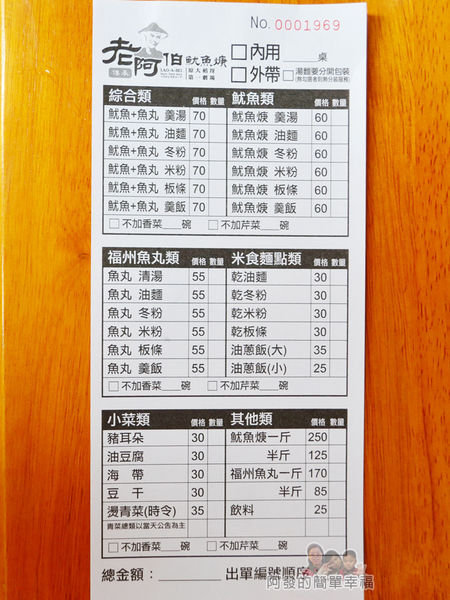 No. 0001969
老阿伯魷魚焿
傳承
原大稻埕
第一劇場
□內用＿＿桌
□外帶 □湯麵要分開包裝
綜合類 價格 數量 魷魚類 價格 數量
魷魚+魚丸 羹湯 70 魷魚焿 羹湯 60
魷魚+魚丸 油麵 70 魷魚焿 油麵 60
魷魚+魚丸 冬粉 70 魷魚焿 冬粉 60
魷魚+魚丸 米粉 70 魷魚焿 米粉 60
魷魚+魚丸 板條 70 魷魚焿 板條 60
魷魚+魚丸 羹飯 70 魷魚焿 羹飯 60
□不加香菜＿＿碗 □不加芹菜＿＿碗
福州魚丸類 價格 數量 米食麵點類 價格 數量
魚丸 清湯 55 乾油麵 30
魚丸 油麵 55 乾冬粉 30
魚丸 冬粉 55 乾米粉 30
魚丸 米粉 55 乾板條 30
魚丸 板條 55 油蔥飯(大) 35
魚丸 羹飯 55 油蔥飯(小) 25
□不加香菜＿＿碗 □不加芹菜＿＿碗
小菜類 價格 數量 其他類 價格 數量
豬耳朵 30 魷魚焿一斤 250
油豆腐 30 半斤 125
海 帶 30 福州魚丸一斤 170
豆 干 30 半斤 85
燙青菜(時令) 35 飲料 25
青菜總類以當天公告為主
□不加香菜＿＿碗 □不加芹菜＿＿碗
總金額：＿＿＿＿ 出單編號順序
阿發的簡單幸福